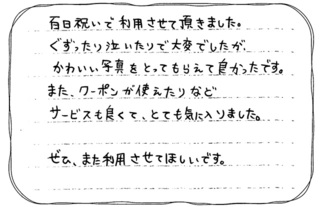 百日祝いで利用させて頂きました。
ぐずったり泣いたりで大変でしたが、
かわいい写真をとってもらえて良かったです。
また、クーポンが使えたりなど
サービスも良くて、とても気に入りました。
ぜひ、また利用させてほしいです。